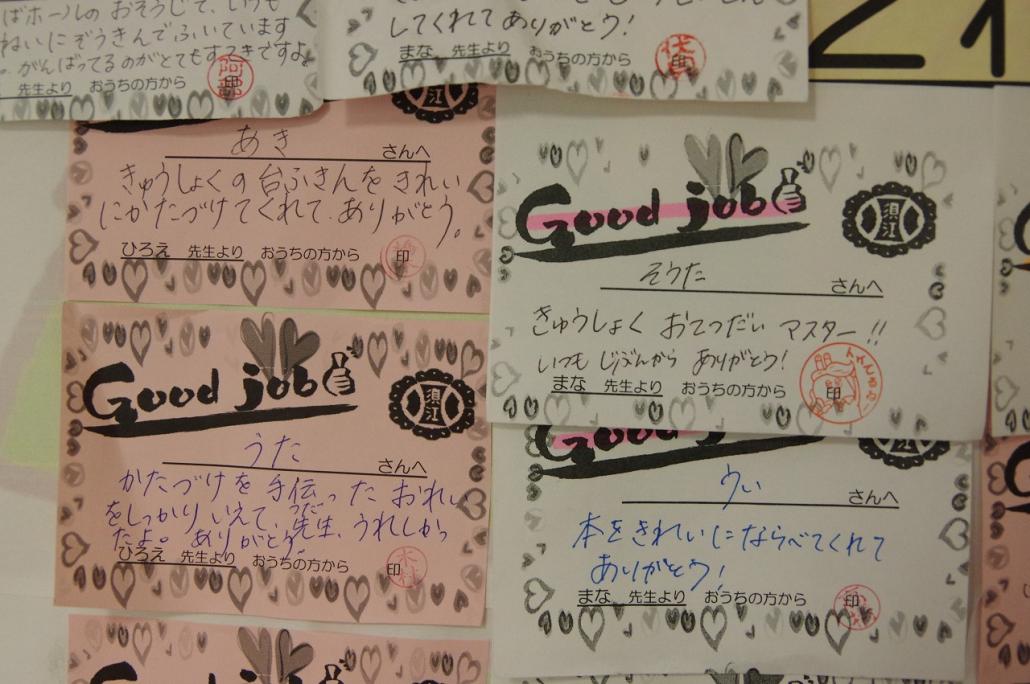 ばホールのおそうじで、いつも
ねいにぞうきんでふいています
。がんばってるのがとてもすてきですよ。
先生より おうちの方から
してくれてありがとう!
まな 先生より おうちの方から
21
あき さんへ
きゅうしょくの台ふきんをきれい
にかたづけてくれて、ありがとう。
ひろえ 先生より おうちの方から 印
Good job
須江
そうた さんへ
きゅうしょく おてつだい マスター!!
いつも じぶんから ありがとう!
まな 先生より おうちの方から 印
Good job
須江
うた さんへ
かたづけを手伝ったおれい
をしっかりいえて、つだ先生、うれしかっ
たよ。ありがとう。
ひろえ 先生より おうちの方から 印
うい さんへ
本をきれいにならべてくれて
ありがとう!
まな 先生より おうちの方から 印